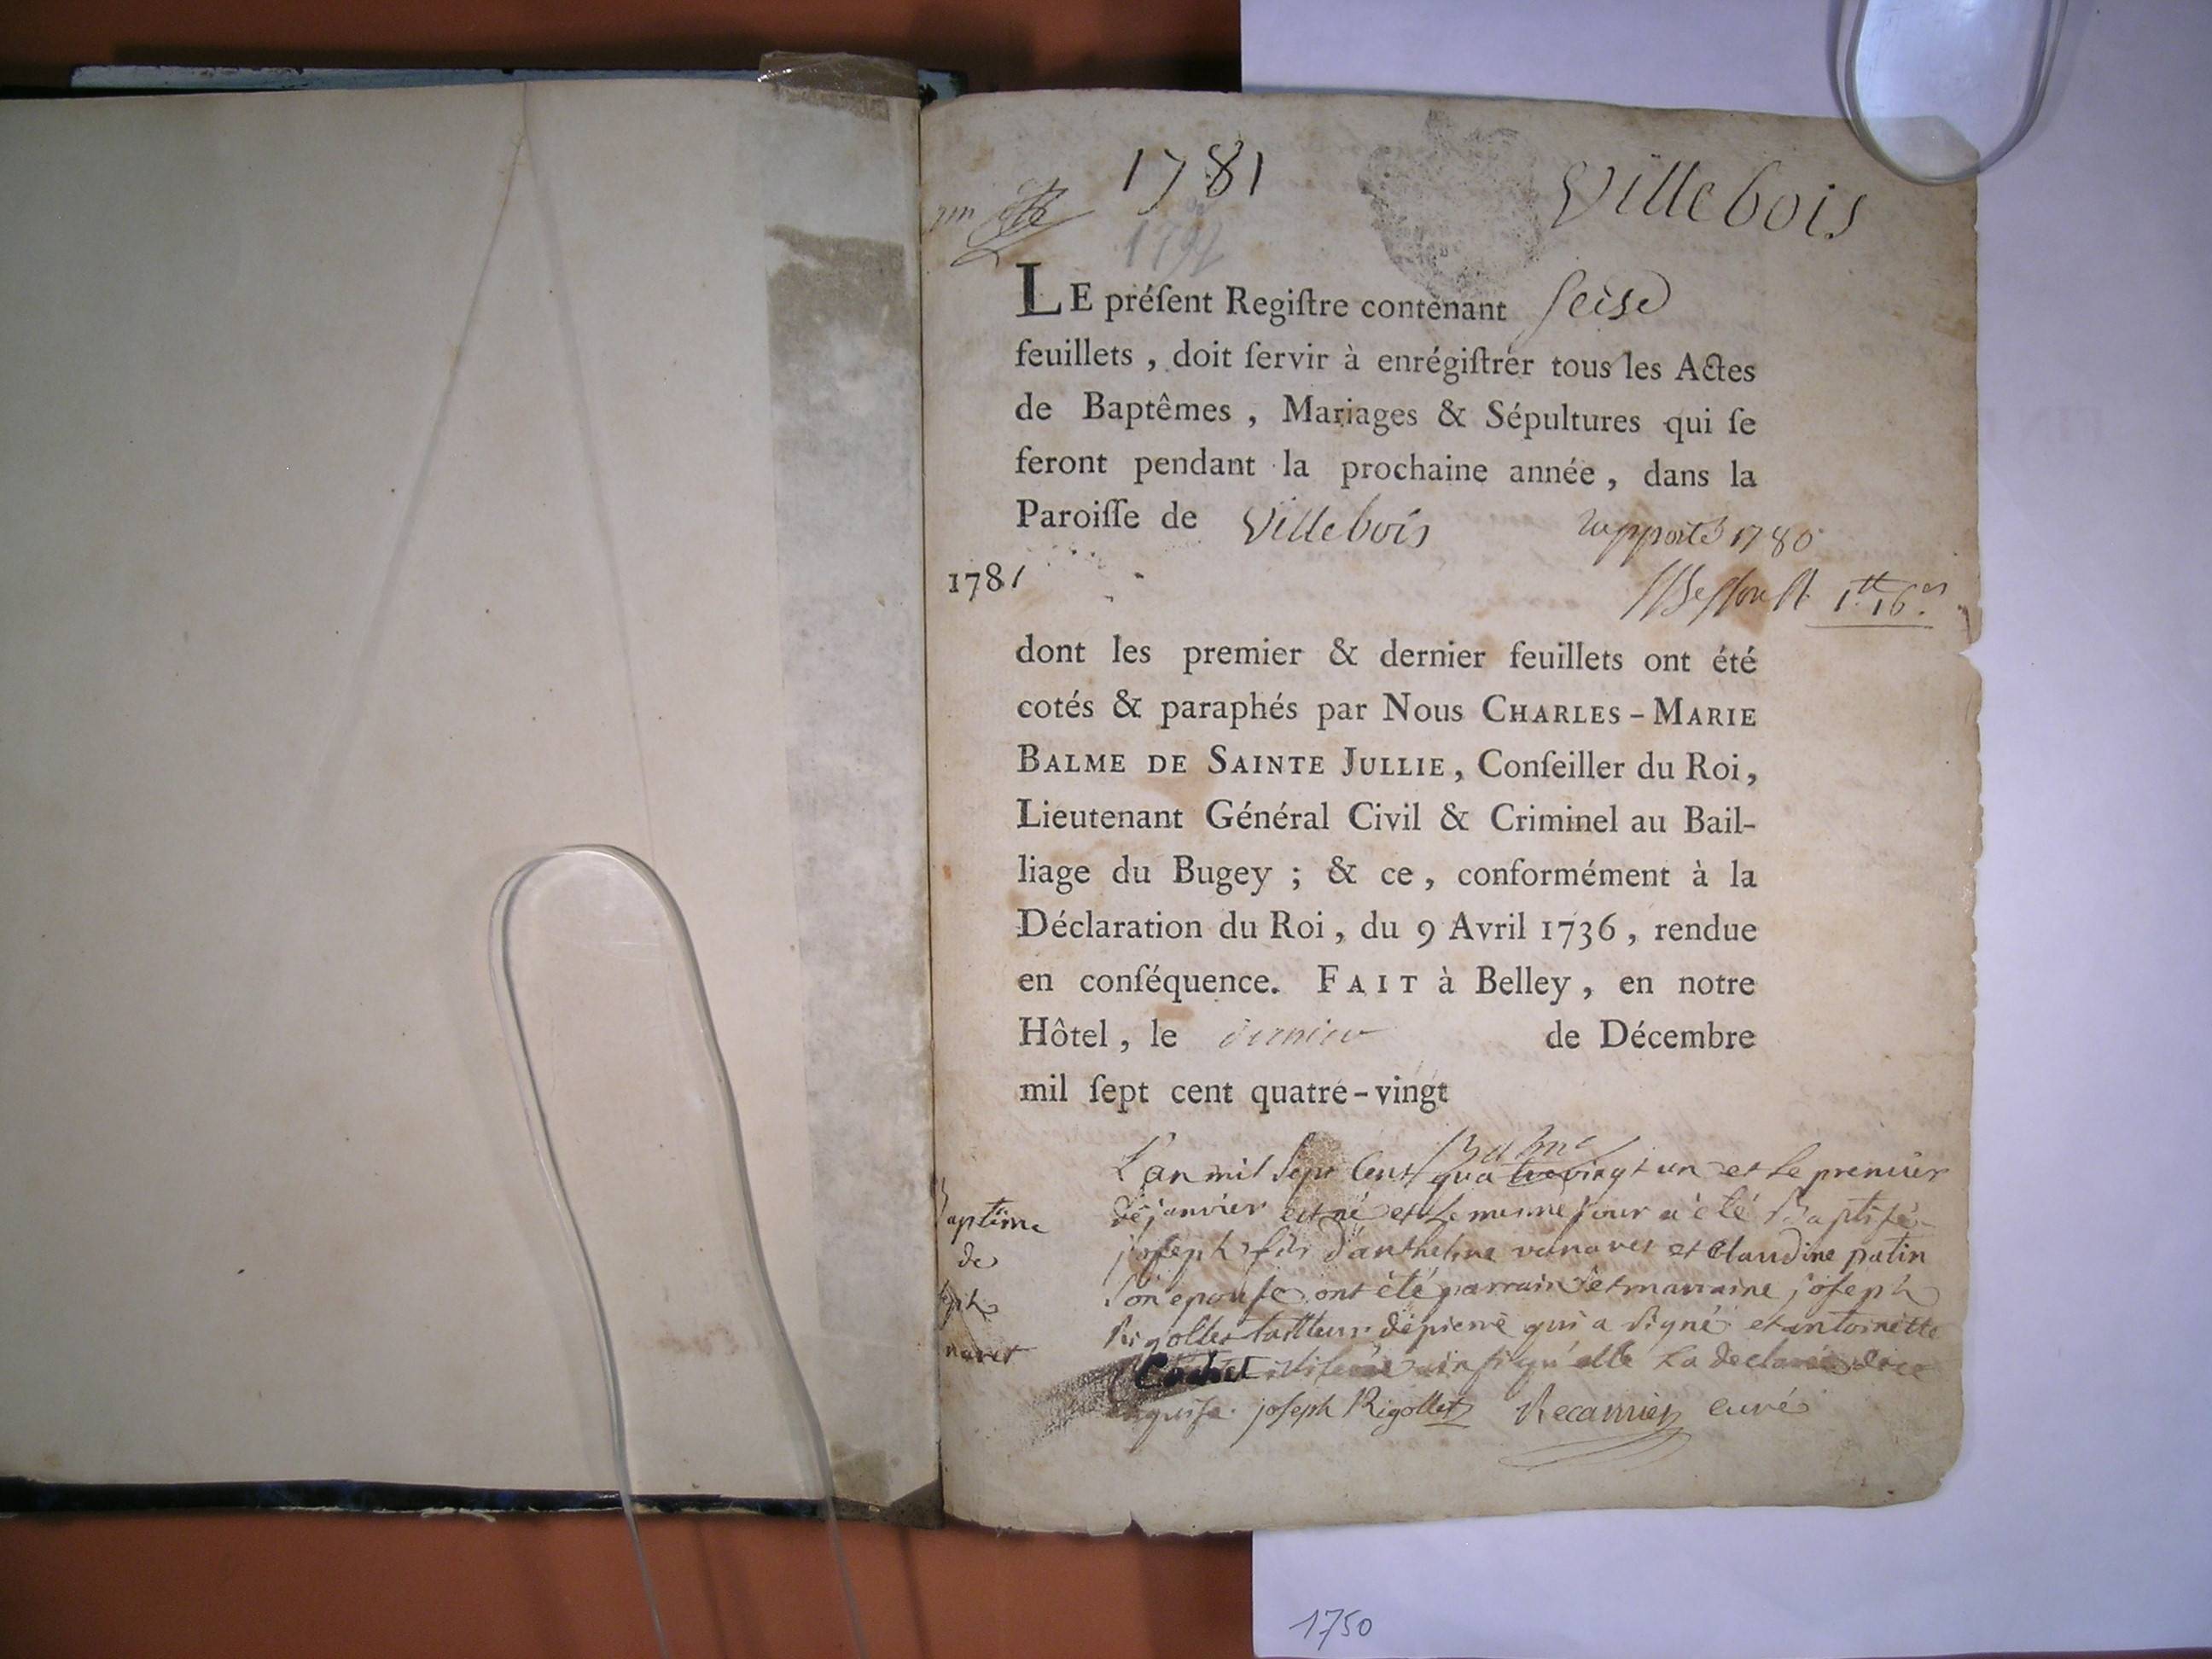 1781
Villebois
LE préſent Regiſtre contenant ſeise
feuillets , doit ſervir à enrégiſtrer tous les Actes
de Baptêmes , Mariages & Sépultures qui ſe
feront pendant la prochaine année , dans la
Paroiſſe de Villebois rapporté 1780
1781
dont les premier & dernier feuillets ont été
cotés & paraphés par Nous CHARLES-MARIE
BALME DE SAINTE JULLIE, Conſeiller du Roi,
Lieutenant Général Civil & Criminel au Bail-
liage du Bugey ; & ce, conformément à la
Déclaration du Roi, du 9 Avril 1736, rendue
en conſéquence. FAIT à Belley, en notre
Hôtel, le dernier de Décembre
mil ſept cent quatre-vingt
Balme
L'an mil Sept Cent quatrevingt un et le premier
de janvier est né et le meme jour a été Baptisé
joseph fils d'anthelme vanavet et Claudine patin
Son epouse ont été parrain et marraine joseph
Rigollet tailleur de pierre qui a Signé et antoinette
Cochet ainsi qu'elle La declaré de ce
enquise. joseph Rigollet Recamier curé
aptême
de
seph
navet
1750